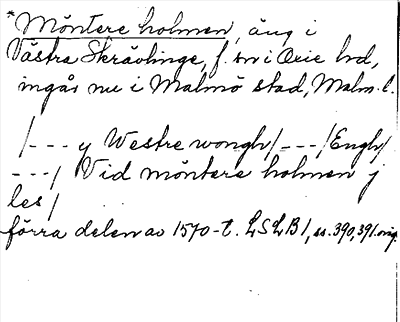 *Möntere holmen, äng i
Västra Skrävlinge, f. sn i Oxie hd,
ingår nu i Malmö stad, Malm. l.
/--- y Westre wongh/---/Engh/
---/ Vid möntere holmen j
les/
förra delen av 1570-t. LSLB 1, ss. 390, 391. orig.